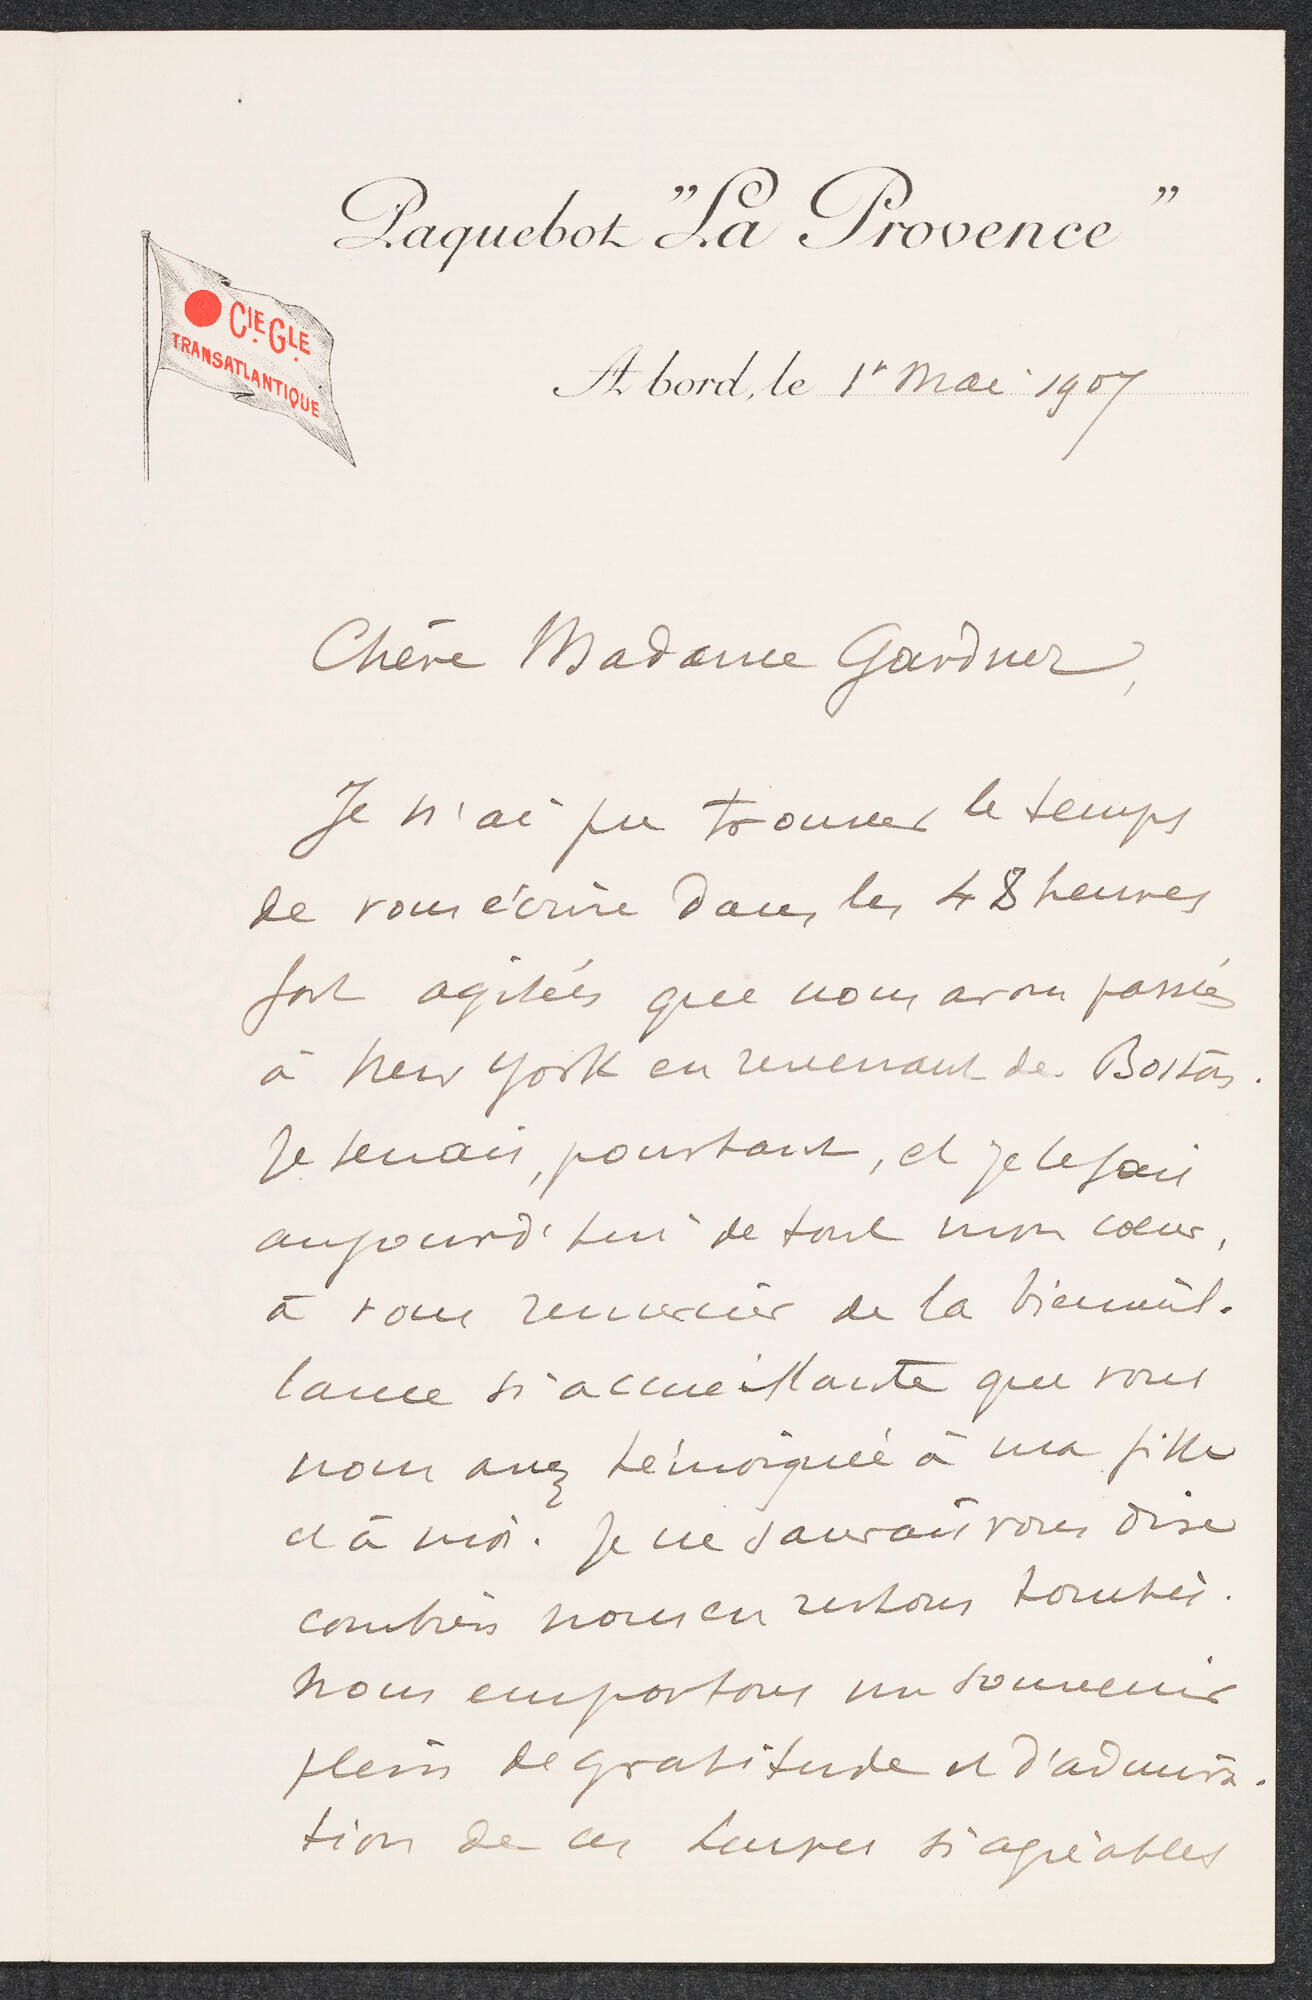 Paquebot "La Provence"
CIE GLE
TRANSATLANTIQUE
A bord, le 1r Mai 1907
Chère Madame Gardner,
Je n'ai pu trouver le temps
de vous écrire dans les 48 heures
fort agitées que nous avons passées
à New York en revenant de Boston.
Je tenais, pourtant, et je le fais
aujourd'hui de tout mon cœur,
à vous remercier de la bienveil-
lance si accueillante que vous
nous avez témoignée à ma fille
et à moi. Je ne saurais vous dire
combien nous en restons touchés.
Nous emportons un souvenir
plein de gratitude et d'admira-
tion de ces heures si agréables